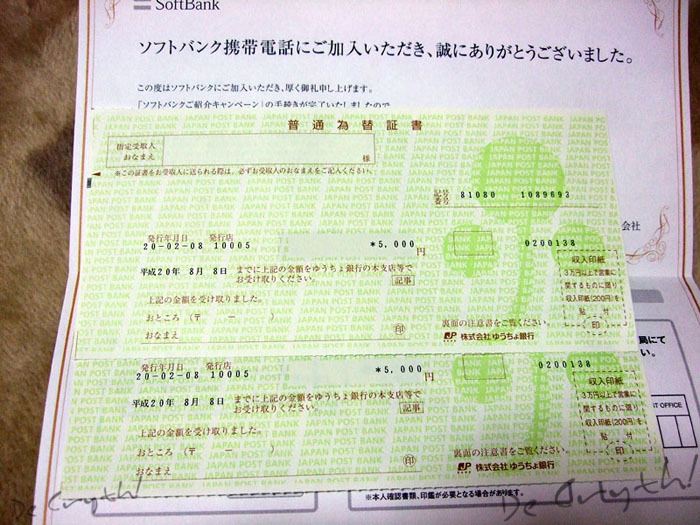 SoftBank
ソフトバンク携帯電話にご加入いただき、誠にありがとうございました。
この度はソフトバンクにご加入いただき、厚く御礼申し上げます。
「ソフトバンクご紹介キャンペーン」の手続きが完了いたしましたので
普通為替証書
指定受取人
おなまえ
様
※この証書をお受取人に送られる際は、必ずお受取人のおなまえをご記入ください。
記号
番号
81080 1089693
会社
発行年月日 発行店
20-02-08 10005
*5,000
円
0200138
平成20年 8月 8日 までに上記の金額をゆうちょ銀行の本支店等で
お受け取りください。
記事
上記の金額を受け取りました。
おところ (〒 － )
おなまえ
印
収入印紙
3万円以上で営業に
関するものに限り
収入印紙(200円)を
貼 付
印
裏面の注意書をご覧ください。
JP 株式会社 ゆうちょ銀行
発行年月日 発行店
20-02-08 10005
*5,000
円
0200138
平成20年 8月 8日 までに上記の金額をゆうちょ銀行の本支店等で
お受け取りください。
記事
上記の金額を受け取りました。
おところ (〒 － )
おなまえ
印
収入印紙
3万円以上で営業に
関するものに限り
収入印紙(200円)を
貼 付
印
裏面の注意書をご覧ください。
JP 株式会社 ゆうちょ銀行
局にて
い。
POST OFFICE
※本人確認書類、印鑑が必要となる場合があります。
JAPAN POST BANK